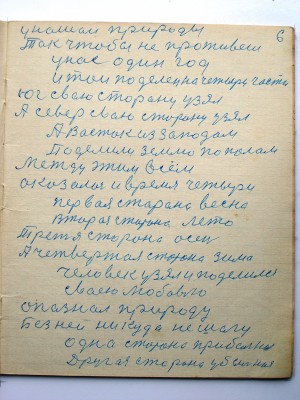 6
упомиаи природы
Так чтобы не противеш
унас один год
и тои поделен на четыри части
юг сваю сторану узял
А север сваю сторону узял
А Васток из заподам
Поделили землю пополам
Между этим всём
оказалоя и время четыри
первая старана весна
вторая сторона лето
Третя сторона осен
А четвертая сторона зима
человек узял и поделился
сваею любовю
опазнал природу
Без ней никуда не шагу
одна сторона прибалная
Другая сторона убалная